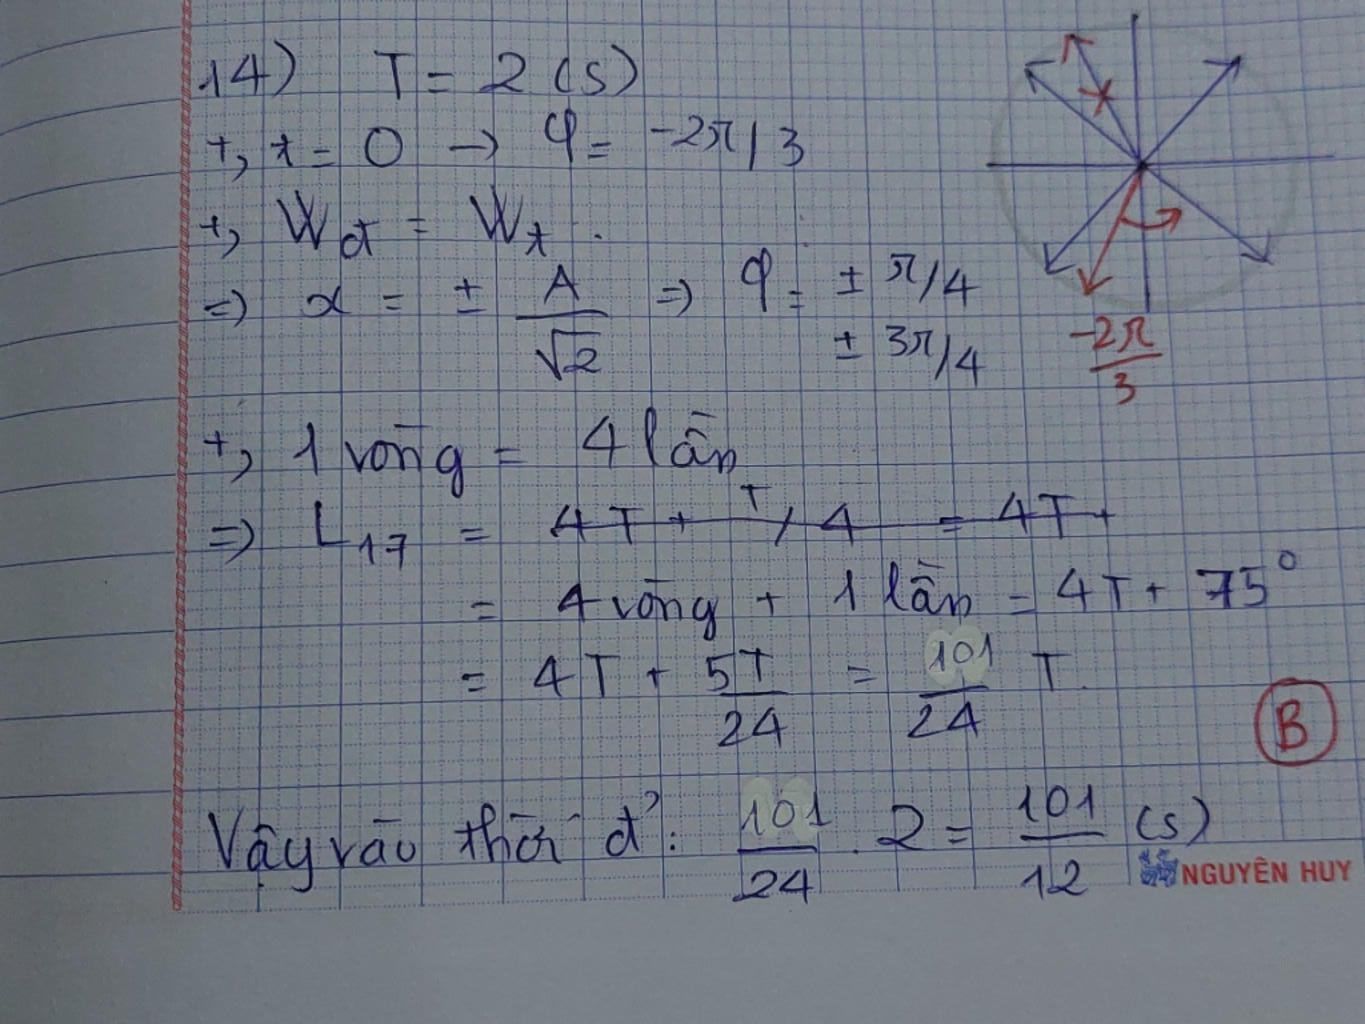 14) T = 2 (s)
+, t = 0 → φ = -2π/3
+, Wđ = Wt.
=> x = ± A/√2 => φ = ± π/4
± 3π/4
-2π/3
+, 1 vòng = 4 lần
=> L17 = 4T + T/4 = 4T +
= 4 vòng + 1 lần = 4T + 75°
= 4T + 5T/24 = 101/24 T.
B
Vậy vào thời đ': 101/24 . 2 = 101/12 (s)
NGUYÊN HUY